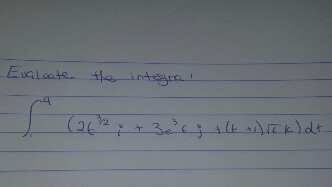 Evaluate the integral
∫₁⁴ (2t^{3/2} i + 3e^{3t} j + (t+1)√t k) dt